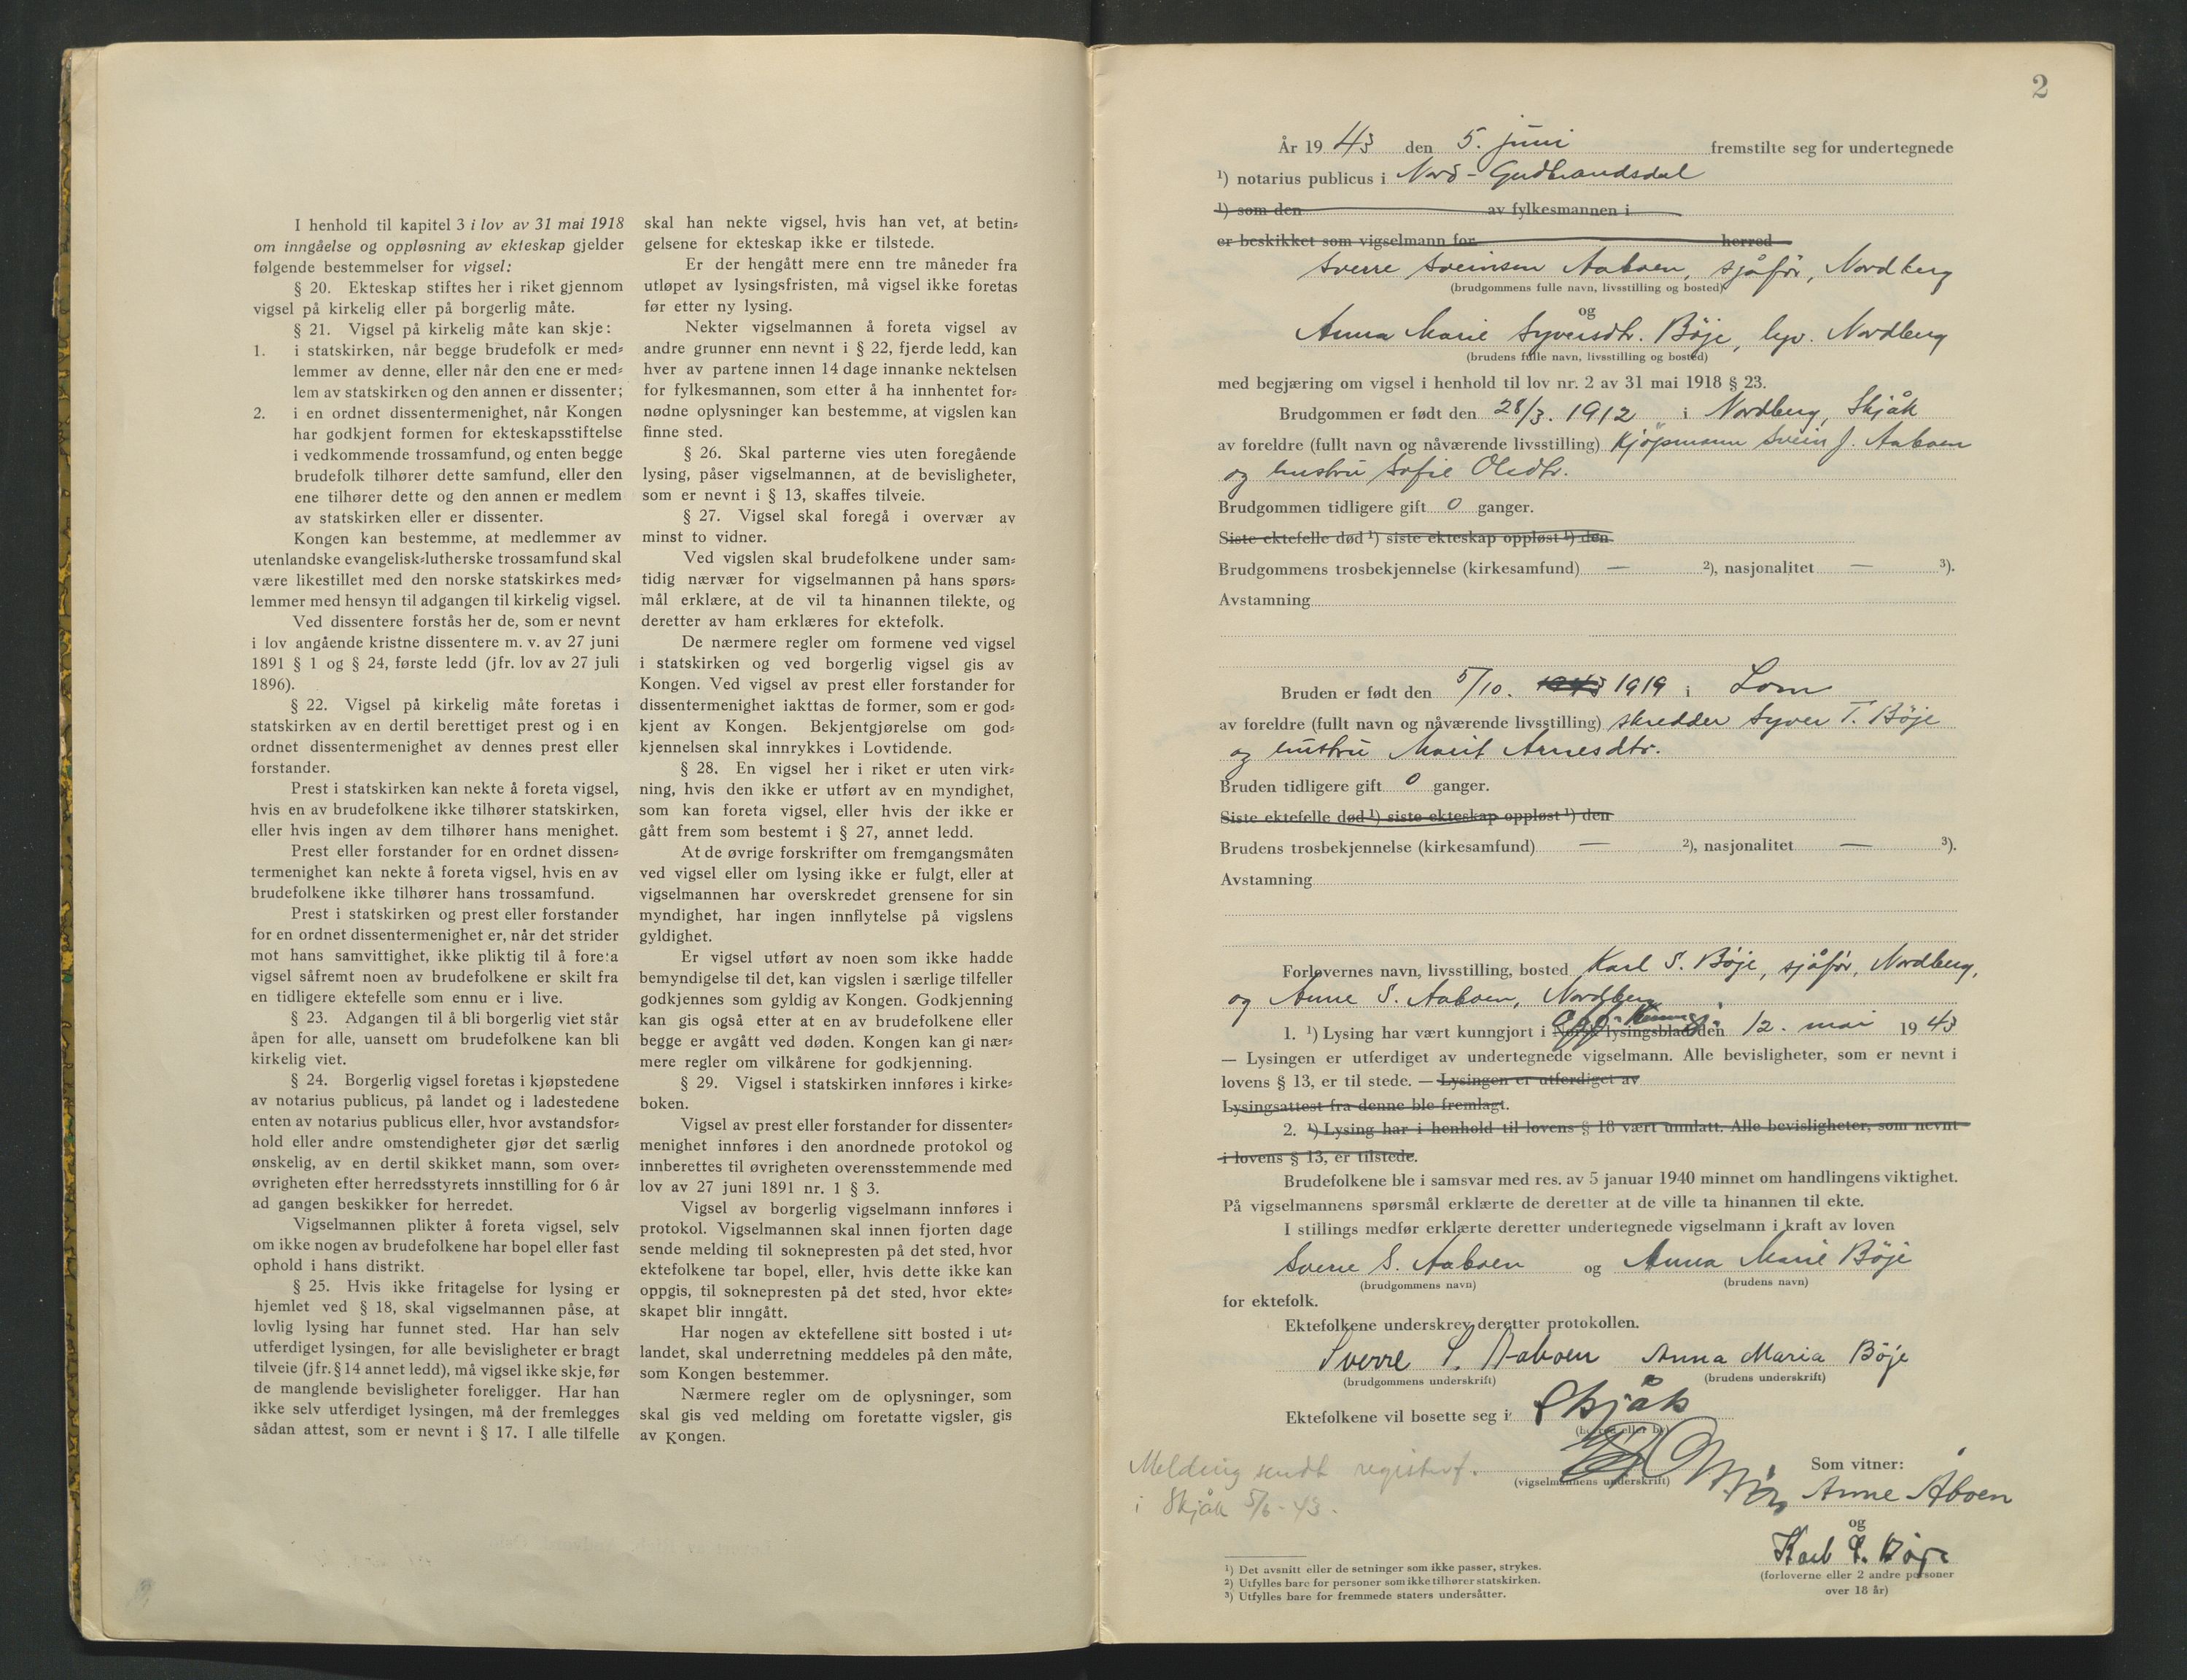 I henhold til kapitel 3 i lov av 31 mai 1918
om inngåelse og oppløsning av ekteskap gjelder
følgende bestemmelser for vigsel:
§ 20. Ekteskap stiftes her i riket gjennom
vigsel på kirkelig eller på borgerlig måte.
§ 21. Vigsel på kirkelig måte kan skje:
1. i statskirken, når begge brudefolk er med-
lemmer av denne, eller når den ene er med-
lem av statskirken og den annen er dissenter;
2. i en ordnet dissentermenighet, når Kongen
har godkjent formen for ekteskapsstiftelse
i vedkommende trossamfund, og enten begge
brudefolk tilhører dette samfund, eller den
ene tilhører dette og den annen er medlem
av statskirken eller er dissenter.
Kongen kan bestemme, at medlemmer av
utenlandske evangelisk-lutherske trossamfund skal
være likestillet med den norske statskirkes med-
lemmer med hensyn til adgangen til kirkelig vigsel.
Ved dissentere forstås her de, som er nevnt
i lov angående kristne dissentere m. v. av 27 juni
1891 § 1 og § 24, første ledd (jfr. lov av 27 juli
1896).
§ 22. Vigsel på kirkelig måte foretas i
statskirken av en dertil berettiget prest og i en
ordnet dissentermenighet av dennes prest eller
forstander.
Prest i statskirken kan nekte å foreta vigsel,
hvis en av brudefolkene ikke tilhører statskirken,
eller hvis ingen av dem tilhører hans menighet.
Prest eller forstander for en ordnet dissen-
termenighet kan nekte å foreta vigsel, hvis en av
brudefolkene ikke tilhører hans trossamfund.
Prest i statskirken og prest eller forstander
for en ordnet dissentermenighet er, når det strider
mot hans samvittighet, ikke pliktig til å foreta
vigsel såfremt noen av brudefolkene er skilt fra
en tidligere ektefelle som ennu er i live.
§ 23. Adgangen til å bli borgerlig viet står
åpen for alle, uansett om brudefolkene kan bli
kirkelig viet.
§ 24. Borgerlig vigsel foretas i kjøpstedene
av notarius publicus, på landet og i ladestedene
enten av notarius publicus eller, hvor avstandsfor-
hold eller andre omstendigheter gjør det særlig
ønskelig, av en dertil skikket mann, som over-
øvrigheten efter herredsstyrets innstilling for 6 år
ad gangen beskikker for herredet.
Vigselmannen plikter å foreta vigsel, selv
om ikke nogen av brudefolkene har bopel eller fast
ophold i hans distrikt.
§ 25. Hvis ikke fritagelse for lysing er
hjemlet ved § 18, skal vigselmannen påse, at
lovlig lysing har funnet sted. Har han selv
utferdiget lysingen, før alle bevisligheter er bragt
tilveie (jfr. § 14 annet ledd), må vigsel ikke skje, før
de manglende bevisligheter foreligger. Har han
ikke selv utferdiget lysingen, må der fremlegges
sådan attest, som er nevnt i § 17. I alle tilfelle
skal han nekte vigsel, hvis han vet, at betin-
gelsene for ekteskap ikke er tilstede.
Er der hengått mere enn tre måneder fra
utløpet av lysingsfristen, må vigsel ikke foretas
før etter ny lysing.
Nekter vigselmannen å foreta vigsel av
andre grunner enn nevnt i § 22, fjerde ledd, kan
hver av partene innen 14 dage innanke nektelsen
for fylkesmannen, som etter å ha innhentet for-
nødne oplysninger kan bestemme, at vigslen kan
finne sted.
§ 26. Skal parterne vies uten foregående
lysing, påser vigselmannen, at de bevisligheter,
som er nevnt i § 13, skaffes tilveie.
§ 27. Vigsel skal foregå i overvær av
minst to vidner.
Ved vigslen skal brudefolkene under sam-
tidig nærvær for vigselmannen på hans spørs-
mål erklære, at de vil ta hinannen tilekte, og
deretter av ham erklæres for ektefolk.
De nærmere regler om formene ved vigsel
i statskirken og ved borgerlig vigsel gis av
Kongen. Ved vigsel av prest eller forstander for
dissentermenighet iakttas de former, som er god-
kjent av Kongen. Bekjentgjørelse om god-
kjennelsen skal innrykkes i Lovtidende.
§ 28. En vigsel her i riket er uten virk-
ning, hvis den ikke er utført av en myndighet,
som kan foreta vigsel, eller hvis der ikke er
gått frem som bestemt i § 27, annet ledd.
At de øvrige forskrifter om fremgangsmåten
ved vigsel eller om lysing ikke er fulgt, eller at
vigselmannen har overskredet grensene for sin
myndighet, har ingen innflytelse på vigslens
gyldighet.
Er vigsel utført av noen som ikke hadde
bemyndigelse til det, kan vigslen i særlige tilfeller
godkjennes som gyldig av Kongen. Godkjenning
kan gis også etter at en av brudefolkene eller
begge er avgått ved døden. Kongen kan gi nær-
mere regler om vilkårene for godkjenning.
§ 29. Vigsel i statskirken innføres i kirke-
boken.
Vigsel av prest eller forstander for dissenter-
menighet innføres i den anordnede protokol og
innberettes til øvrigheten overensstemmende med
lov av 27 juni 1891 nr. 1 § 3.
Vigsel av borgerlig vigselmann innføres i
protokol. Vigselmannen skal innen fjorten dage
sende melding til soknepresten på det sted, hvor
ektefolkene tar bopel, eller, hvis dette ikke kan
oppgis, til soknepresten på det sted, hvor ekte-
skapet blir inngått.
Har nogen av ektefellene sitt bosted i ut-
landet, skal underretning meddeles på den måte,
som Kongen bestemmer.
Nærmere regler om de oplysninger, som
skal gis ved melding om foretatte vigsler, gis
av Kongen.
2
År 1943 den 5. juni fremstilte seg for undertegnede
¹) notarius publicus i Nord-Gudbrandsdal
¹) som den av fylkesmannen i
er beskikket som vigselmann for herred
Sverre Sveinsen Aaboen, sjåför, Nordberg
(brudgommens fulle navn, livsstilling og bosted)
og
Anna Marie Syversdtr. Böje, hjv. Nordberg
(brudens fulle navn, livsstilling og bosted)
med begjæring om vigsel i henhold til lov nr. 2 av 31 mai 1918 § 23.
Brudgommen er født den 28/3. 1912 i Nordberg, Skjåk
av foreldre (fullt navn og nåværende livsstilling) Kjöpmann Svein J. Aaboen
og hustru Sofie Olsdtr.
Brudgommen tidligere gift 0 ganger.
Siste ektefelle død ¹) siste ekteskap oppløst ¹) den
Brudgommens trosbekjennelse (kirkesamfund) — ²), nasjonalitet — ³).
Avstamning
Bruden er født den 5/10. 1943 1919 i Lom
av foreldre (fullt navn og nåværende livsstilling) skredder Syver T. Böje
og hustru Marit Arnesdtr.
Bruden tidligere gift 0 ganger.
Siste ektefelle død ¹) siste ekteskap oppløst ¹) den
Brudens trosbekjennelse (kirkesamfund) — ²), nasjonalitet — ³).
Avstamning
Forlovernes navn, livsstilling, bosted Karl S. Böje, sjåför, Nordberg,
og Anne S. Aaboen, Nordberg
1. ¹) Lysing har vært kunngjort i Norsk lysingsblad den 12. mai 1943
— Lysingen er utferdiget av undertegnede vigselmann. Alle bevisligheter, som er nevnt i
lovens § 13, er til stede. — Lysingen er utferdiget av
Lysingsattest fra denne ble fremlagt.
2. ¹) Lysing har i henhold til lovens § 18 vært unnlatt. Alle bevisligheter, som nevnt
i lovens § 13, er tilstede.
Brudefolkene ble i samsvar med res. av 5 januar 1940 minnet om handlingens viktighet.
På vigselmannens spørsmål erklærte de deretter at de ville ta hinannen til ekte.
I stillings medfør erklærte deretter undertegnede vigselmann i kraft av loven
Sverre S. Aaboen og Anna Marie Böje
(brudgommens navn) (brudens navn)
for ektefolk.
Ektefolkene underskrev deretter protokollen.
Sverre S. Aaboen Anna Maria Böje
(brudgommens underskrift) (brudens underskrift)
Ektefolkene vil bosette seg i Skjåk
(herred eller by)
Melding sendt registerf.
(vigselmannens underskrift)
Som vitner:
i Skjåk 5/6-43.
Anne Åboen
og
Karl S. Böje
(forloverne eller 2 andre personer
over 18 år)
¹) Det avsnitt eller de setninger som ikke passer, strykes.
²) Utfylles bare for personer som ikke tilhører statskirken.
³) Utfylles bare for fremmede staters undersåtter.